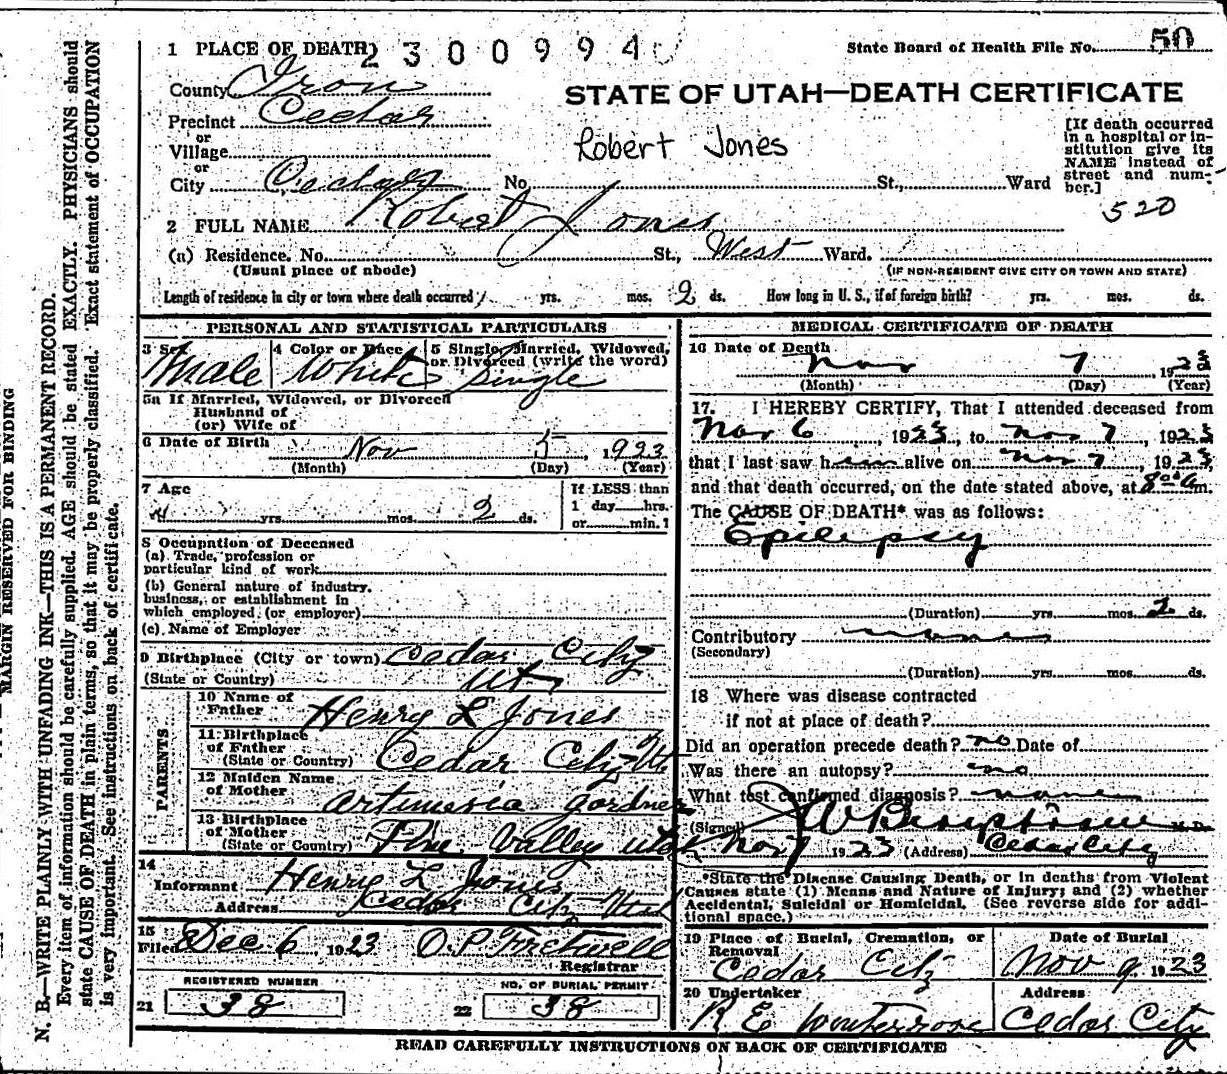 1 PLACE OF DEATH 2300994
State Board of Health File No. 50
County Iron
STATE OF UTAH—DEATH CERTIFICATE
Precinct Cedar
or
Village
or
City Cedar No. St., Ward
Robert Jones
[If death occurred
in a hospital or in-
stitution give its
NAME instead of
street and num-
ber.]
520
2 FULL NAME Robert Jones
(a) Residence. No. St., West Ward.
(Usual place of abode) (IF NON-RESIDENT GIVE CITY OR TOWN AND STATE)
Length of residence in city or town where death occurred yrs. mos. 2 ds. How long in U. S., if of foreign birth? yrs. mos. ds.
PERSONAL AND STATISTICAL PARTICULARS
3 Sex 4 Color or Race 5 Single, Married, Widowed,
or Divorced (write the word)
Male White Single
5a If Married, Widowed, or Divorced
Husband of
(or) Wife of
6 Date of Birth Nov 5, 1923
(Month) (Day) (Year)
7 Age yrs. mos. 2 ds.
If LESS than
1 day hrs.
or min.?
8 Occupation of Deceased
(a) Trade, profession or
particular kind of work
(b) General nature of industry,
business, or establishment in
which employed (or employer)
(c) Name of Employer
9 Birthplace (City or town) Cedar City
(State or Country) Ut
PARENTS
10 Name of
Father Henry L Jones
11 Birthplace
of Father
(State or Country) Cedar City Ut.
12 Maiden Name
of Mother Artimesia Gardner
13 Birthplace
of Mother
(State or Country) Pine Valley Utah
14
Informant Henry L Jones
Address Cedar City Utah
15
Filed Dec 6 1923 O.P. Fretwell
Registrar
REGISTERED NUMBER NO. OF BURIAL PERMIT
21 38 22 38
MEDICAL CERTIFICATE OF DEATH
16 Date of Death Nov 7 1923
(Month) (Day) (Year)
17. I HEREBY CERTIFY, That I attended deceased from
Nov 6, 1923, to Nov 7, 1923
that I last saw him alive on Nov 7, 1923
and that death occurred, on the date stated above, at 8 00 A m.
The CAUSE OF DEATH* was as follows:
Epilepsy
(Duration) yrs. mos. 2 ds.
Contributory none
(Secondary)
(Duration) yrs. mos. ds.
18 Where was disease contracted
if not at place of death?
Did an operation precede death? no Date of
Was there an autopsy? no
What test confirmed diagnosis? none
(Signed) M. D.
Nov 7 1923 (Address) Cedar City
*State the Disease Causing Death, or in deaths from Violent
Causes state (1) Means and Nature of Injury; and (2) whether
Accidental, Suicidal or Homicidal. (See reverse side for addi-
tional space.)
19 Place of Burial, Cremation, or Date of Burial
Removal
Cedar City Nov 9 1923
20 Undertaker Address
R E Wintterrose Cedar City
READ CAREFULLY INSTRUCTIONS ON BACK OF CERTIFICATE
MARGIN RESERVED FOR BINDING
N. B.—WRITE PLAINLY WITH UNFADING INK—THIS IS A PERMANENT RECORD.
Every item of information should be carefully supplied. AGE should be stated EXACTLY. PHYSICIANS should
state CAUSE OF DEATH in plain terms, so that it may be properly classified. Exact statement of OCCUPATION
is very important. See instructions on back of certificate.